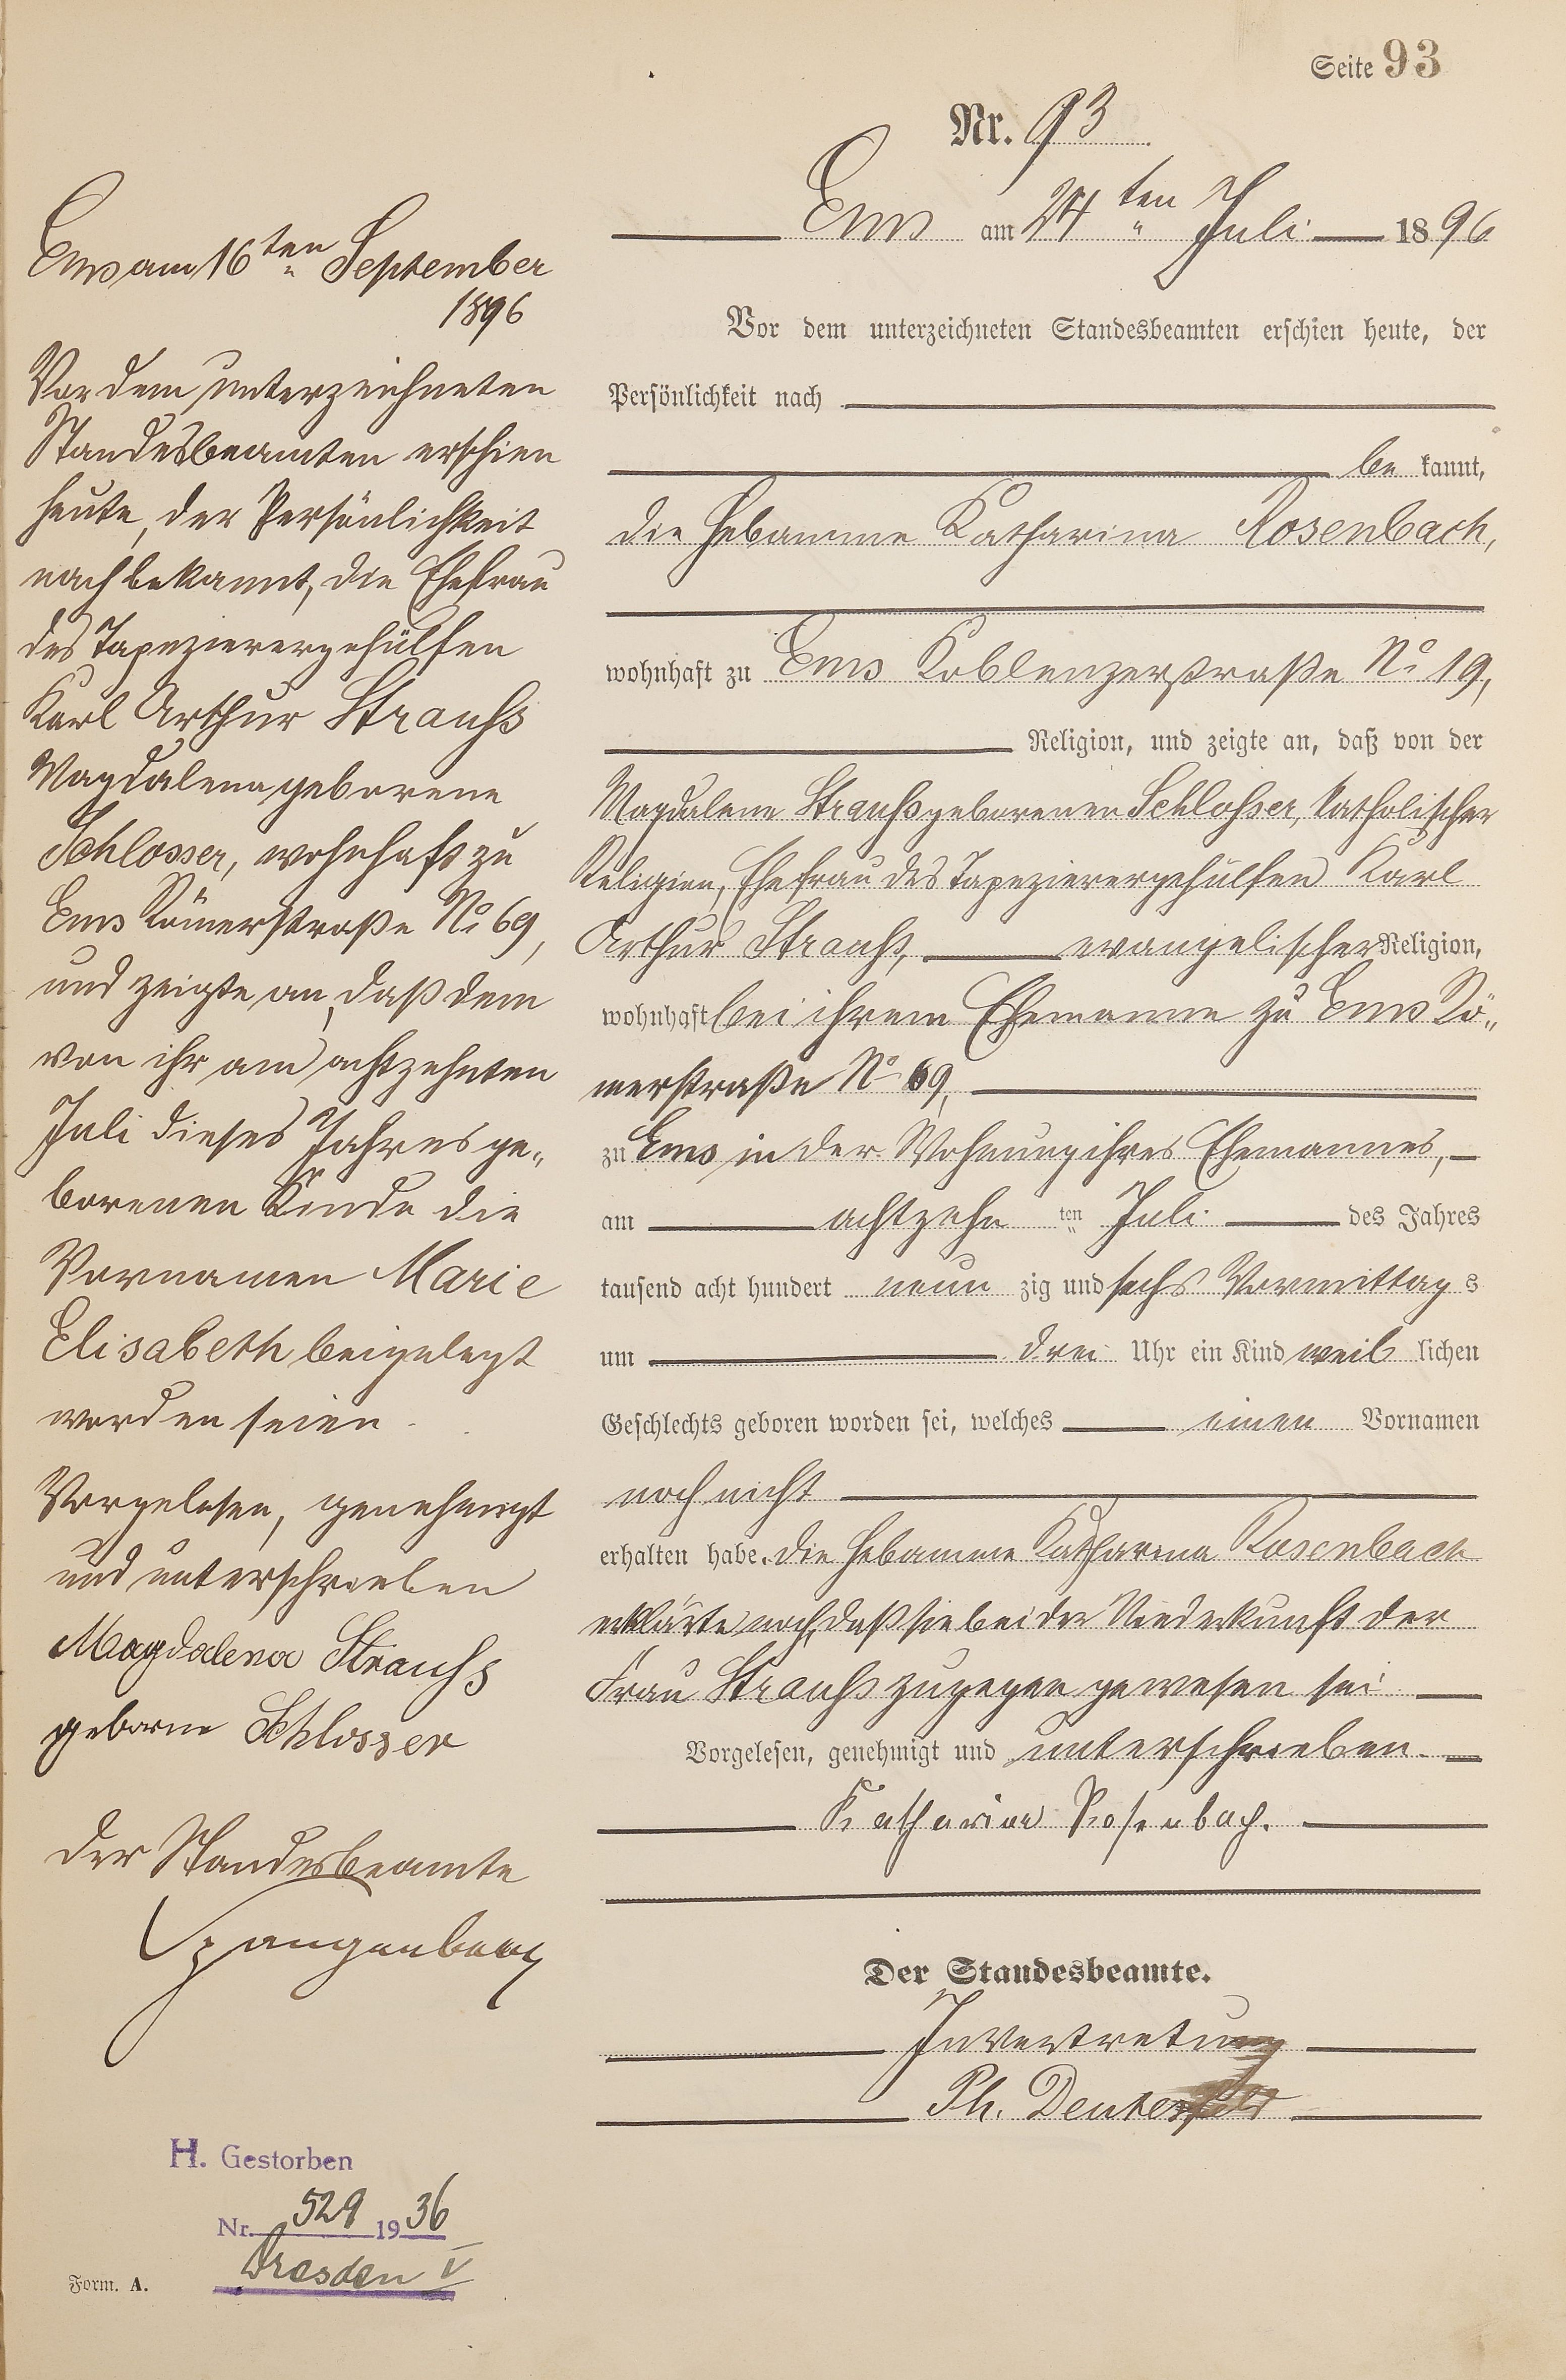 Seite 93
Nr. 93
Ems am 24ten Juli 1896
Vor dem unterzeichneten Standesbeamten erschien heute, der
Persönlichkeit nach
be kannt,
die Hebamme Katharina Rosenbach,
wohnhaft zu Ems Koblenzerstraße No 19,
Religion, und zeigte an, daß von der
Magdalene Strauß geborenen Schloßer, katholischer
Religion, Ehefrau des Tapezierergehülfen Karl
Arthur Strauß, evangelischer Religion,
wohnhaft bei ihrem Ehemanne zu Ems Rö„
merstraße No 69,
zu Ems in der Wohnung ihres Ehemannes,
am achtzehn ten Juli des Jahres
tausend acht hundert neun zig und sechs Vormittag s
um drei Uhr ein Kind weib lichen
Geschlechts geboren worden sei, welches einen Vornamen
noch nicht
erhalten habe. Die Hebamme Katharina Rosenbach
erklärte noch, daß sie bei der Niederkunft der
Frau Strauß zugegen gewesen sei
Vorgelesen, genehmigt und unterschrieben.
Katharina Rosenbach.
Der Standesbeamte.
In Vertretung
Ph.
Ems am 16ten September
1896
Vor dem unterzeichneten
Standesbeamten erschien
heute, der Persönlichkeit
nach bekannt, die Ehefrau
des Tapezierergehülfen
Karl Arthur Strauß
Magdalena geborene
Schlosser, wohnhaft zu
Ems Römerstraße No 69,
und zeigte an, daß dem
von ihr am achtzehnten
Juli dieses Jahres ge„
borenen Kinde die
Vornamen Marie
Elisabeth beigelegt
worden seien.
Vorgelesen, genehmigt
und unterschrieben
Magdalena Strauß
geborne Schlosser
Der Standesbeamte
Spangenberg
H. Gestorben
Nr. 529 1936
Dresden V
Form. A.